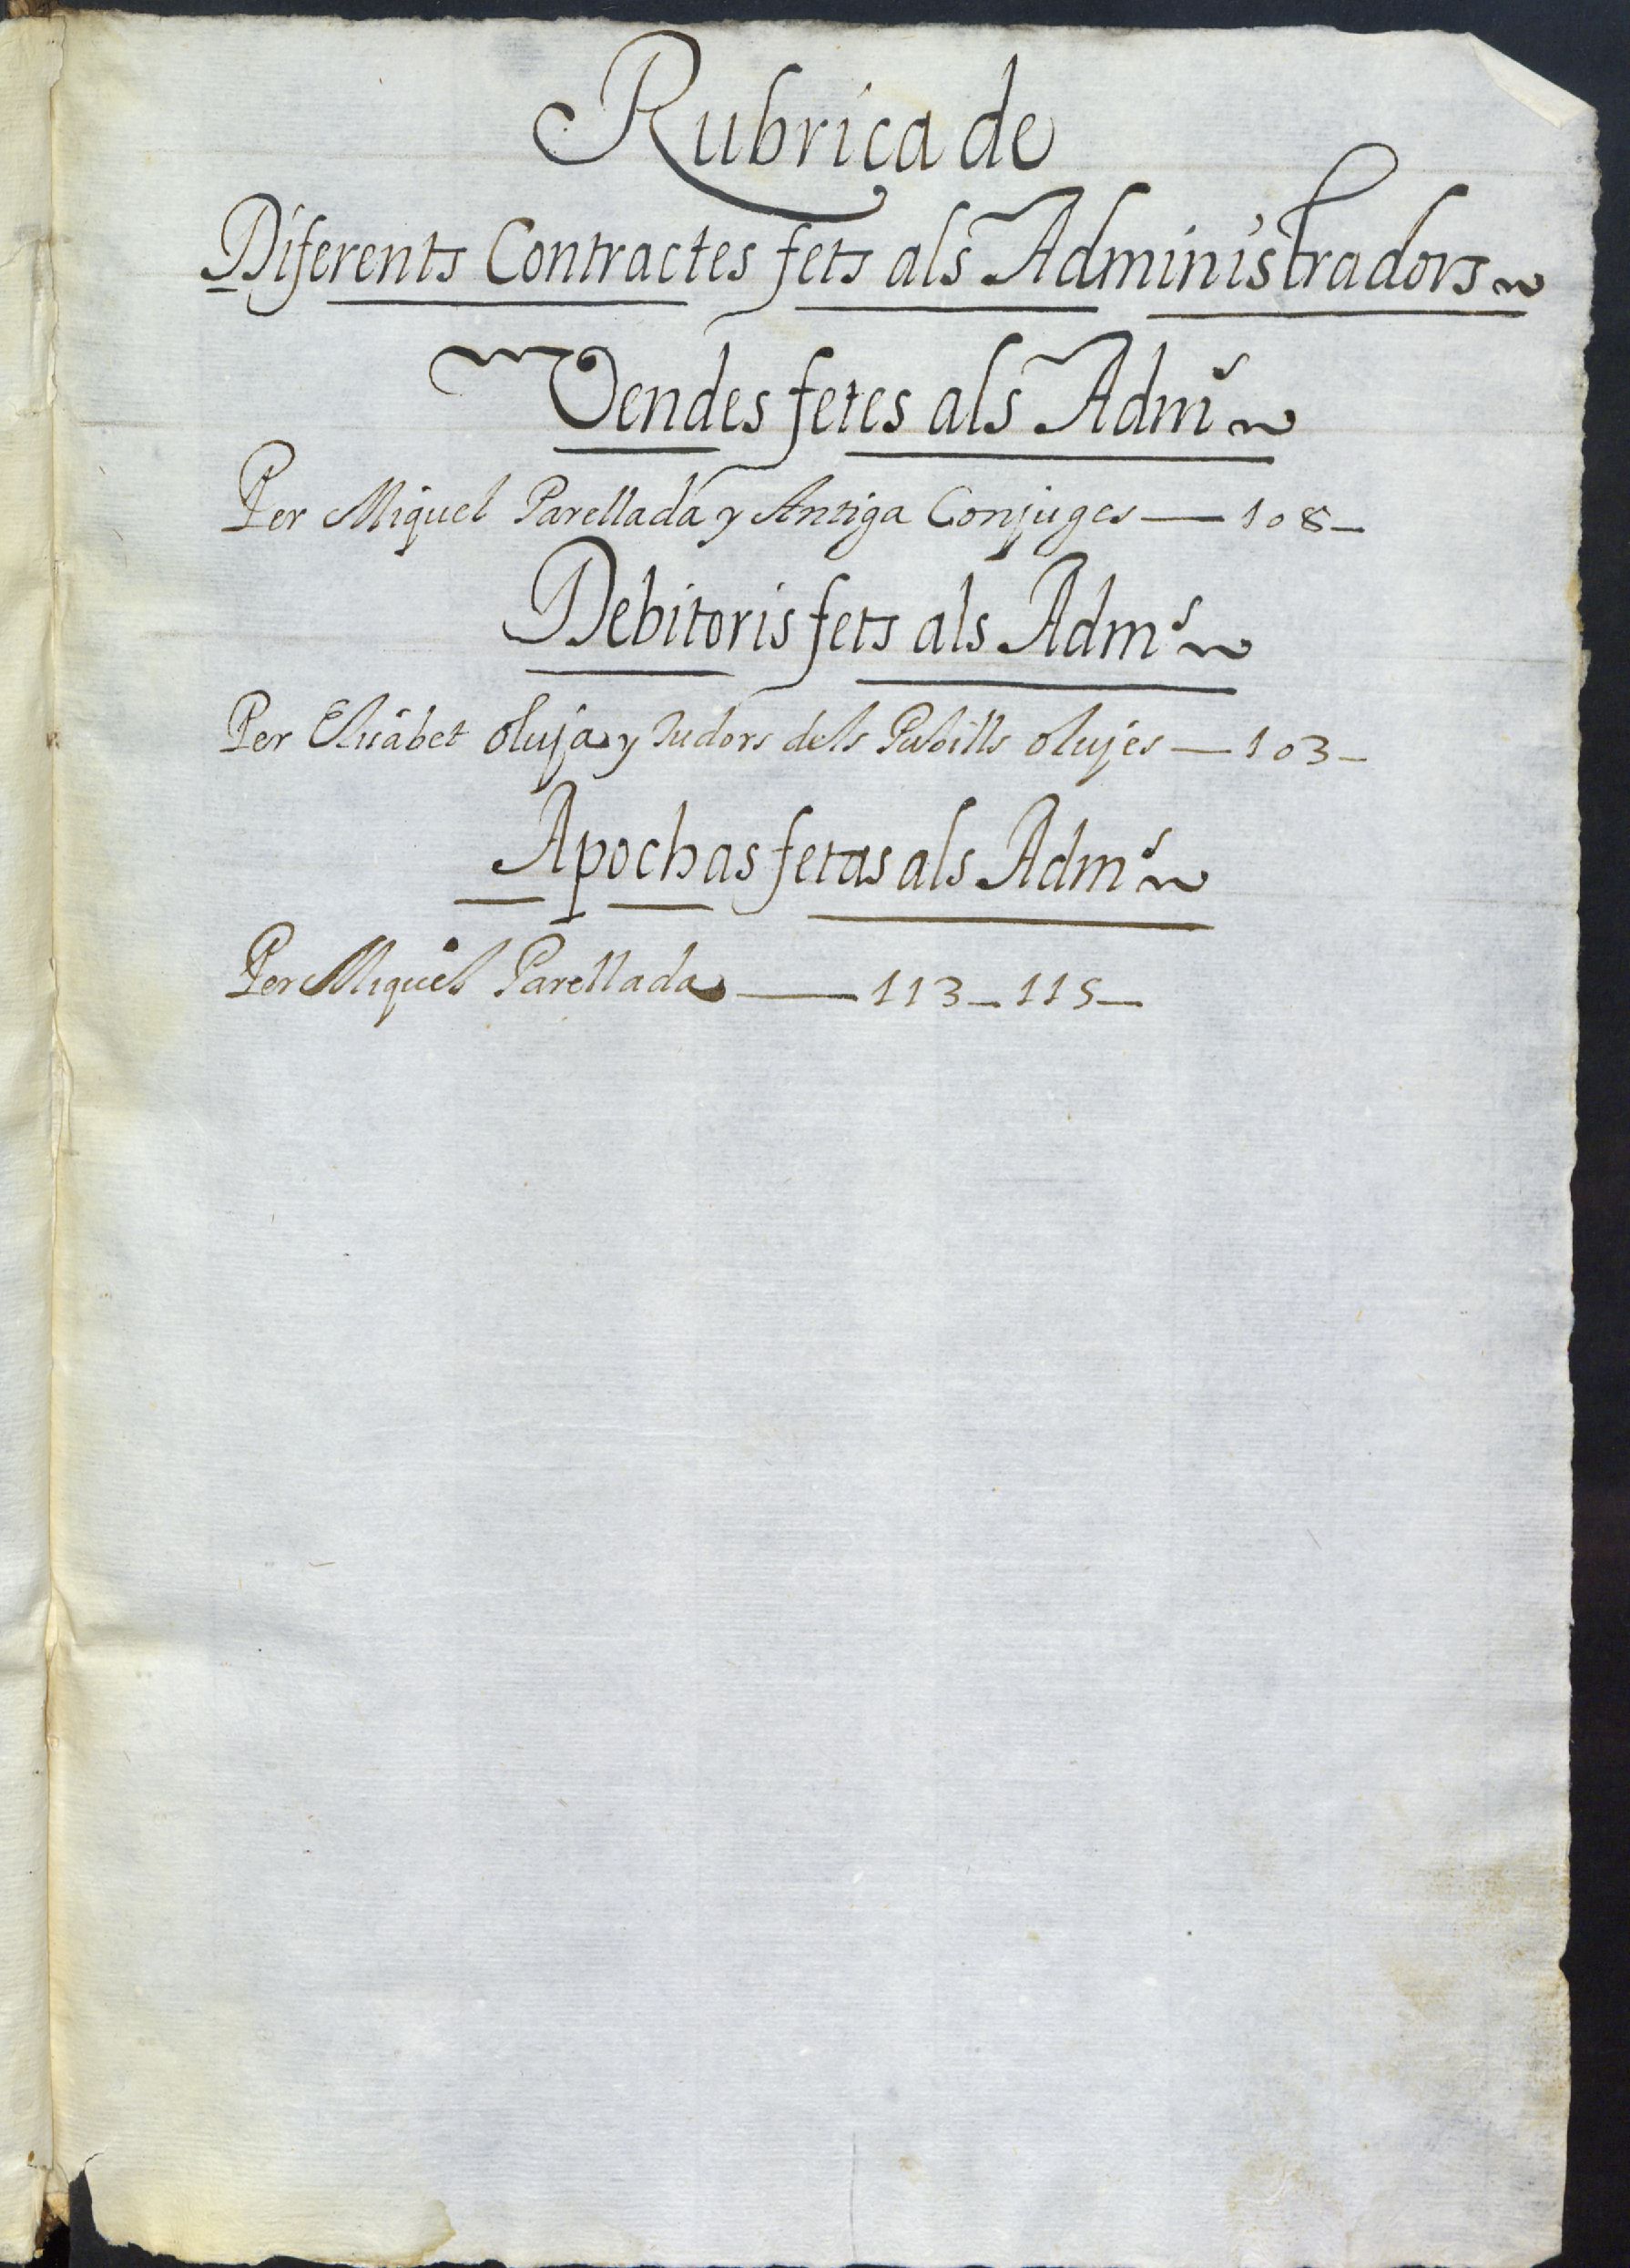 Rubrica de
Diferents Contractes fets als Administradors
Vendes fetes als Admˢ
Per Miquel Parellada y Antiga Conjuges — 108 —
Debitoris fets als Admˢ
Per Elisabet Oluja y Tudors dels Pubills Olujes — 103 —
Apochas fetas als Admˢ
Per Miquel Parellada — 113 — 115 —